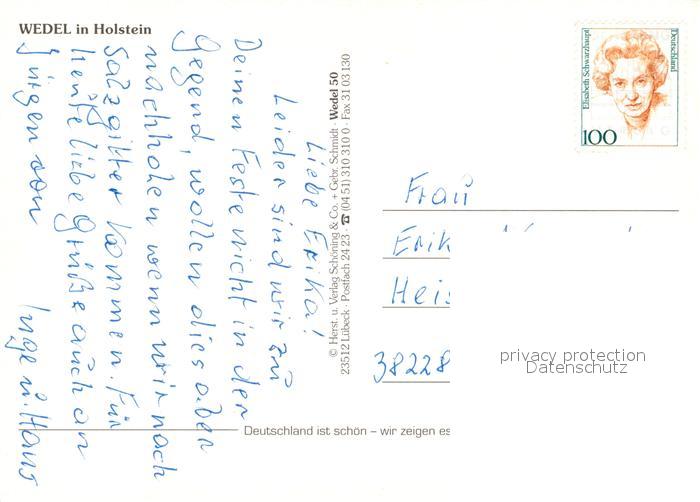 WEDEL in Holstein
Liebe Erika!
Leider sind wir zu
Deinem Feste nicht in der
Gegend, wollen dies aber
nachholen wenn wir nach
Salzgitter kommen. Für
heute liebe Grüße auch an
Jürgen von
Inge u. Hans
© Herst. u. Verlag Schöning & Co. + Gebr. Schmidt · Wedel 50
23512 Lübeck · Postfach 24 23 · ☎ (04 51) 310 310 0 · Fax 31 03 130
Elisabeth Schwarzhaupt
Deutschland
100
Frau
Erik
Heis
38228
privacy protection
Datenschutz
Deutschland ist schön – wir zeigen es